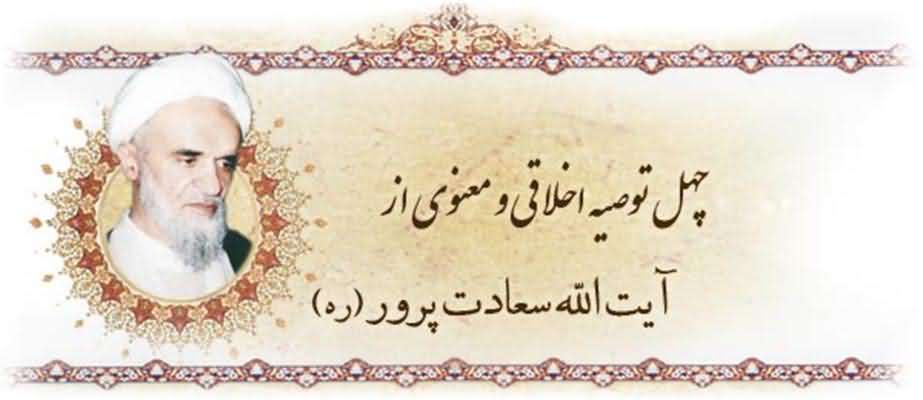 چهل توصیه اخلاقی و معنوی از
آیت الله سعادت پرور (ره)